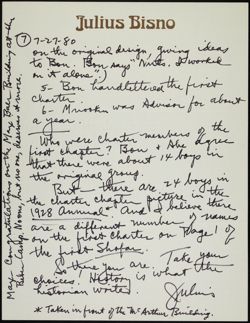 Julius Bisno
7 7-27-80
on the original design, giving ideas
to Bon. Bon says "Nuts. I worked
on it alone.")
5- Bon handlettered the first
charter.
6- Mnookin was Advisor for about
a year.
Who were charter members of the
first chapter? Bon & Abe agree
that there were about 14 boys in
the original group.
But - there are 24 boys in
the charter chapter picture in the
1928 Annual* And I believe there
are a different number of names
on the first charter on Page 1 of
the first Shofar.
So there you are. Take your
choices. History is what the
historian writes.
Julius
* Taken in front of the McArthur Building.
May - Congratulations on the May Baer Building at the
Baber Camp. Nominee, but no one, deserves it more.